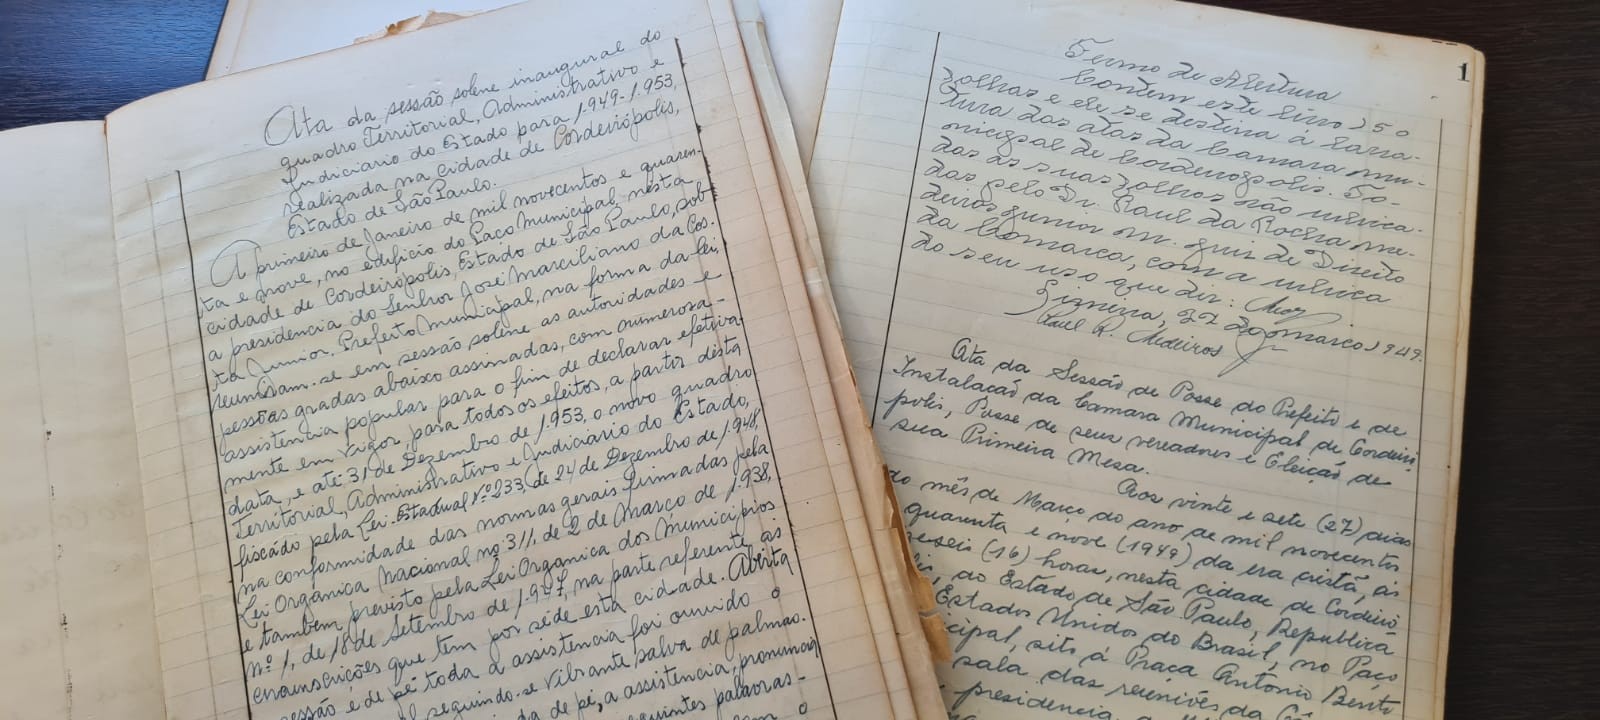 Ata da sessão solene inaugural do
quadro Territorial, Administrativo e
Judiciario do Estado para 1.949-1.953,
realizada na cidade de Cordeirópolis,
Estado de São Paulo.
A primeiro de Janeiro de mil novecentos e quaren-
ta e nove, no edificio do Paço Municipal, nesta
cidade de Cordeirópolis, Estado de São Paulo, sob
a presidencia do Senhor José Marciliano da Cos-
ta Junior. Prefeito Municipal, na forma da lei,
reuniram-se em sessão solene as autoridades e
pessôas gradas abaixo assinadas, com numerosa-
assistencia popular para o fim de declarar efetiva-
mente em vigor, para todos os efeitos, a partir desta
data, e até 31 de Dezembro de 1.953, o novo quadro
Territorial, Administrativo e Judiciario do Estado,
fixado pela Lei Estadual Nº 233, de 24 de Dezembro de 1.948,
na conformidade das normas gerais firmadas pela
Lei Orgânica Nacional nº 311, de 2 de Março de 1.938,
e também previsto pela Lei Organica dos Municipios
nº 1, de 18 de Setembro de 1.947, na parte referente ás
circunscrições que tem por séde esta cidade. Aberta
sessão e de pé toda a assistencia foi ouvido o
seguindo-se vibrante salva de palmas.
da de pé, a assistencia, pronuncia
seguintes palavras-
1
Termo de Abertura
Contem este livro 150
folhas e ele se destina á lavra-
tura das atas da Camara mu-
nicipal de Cordeiropolis. To-
das as suas folhas são rubrica-
das pelo Dr. Raul da Rocha me-
deiros junior m. juiz de Direito
da Comarca, com a rubrica
do seu uso que diz:
Limeira, 22 de março 1949.
Raul R. Medeiros Jr
Ata da Sessão de Posse do Prefeito e de
Instalação da Camara Municipal de Cordeiró
polis, Posse de seus vereadores e Eleição de
sua Primeira Mesa.
Aos vinte e sete (27) dias
do mês de Março do ano de mil novecentos
quarenta e nove (1949) da era cristã, ás
zeseis (16) horas, nesta cidade de Cordeiró
do Estado de São Paulo, Republica
Estados Unidos do Brasil, no Paço
cipal, sito á Praça Antonio Bento
sala das reuniões da
presidencia